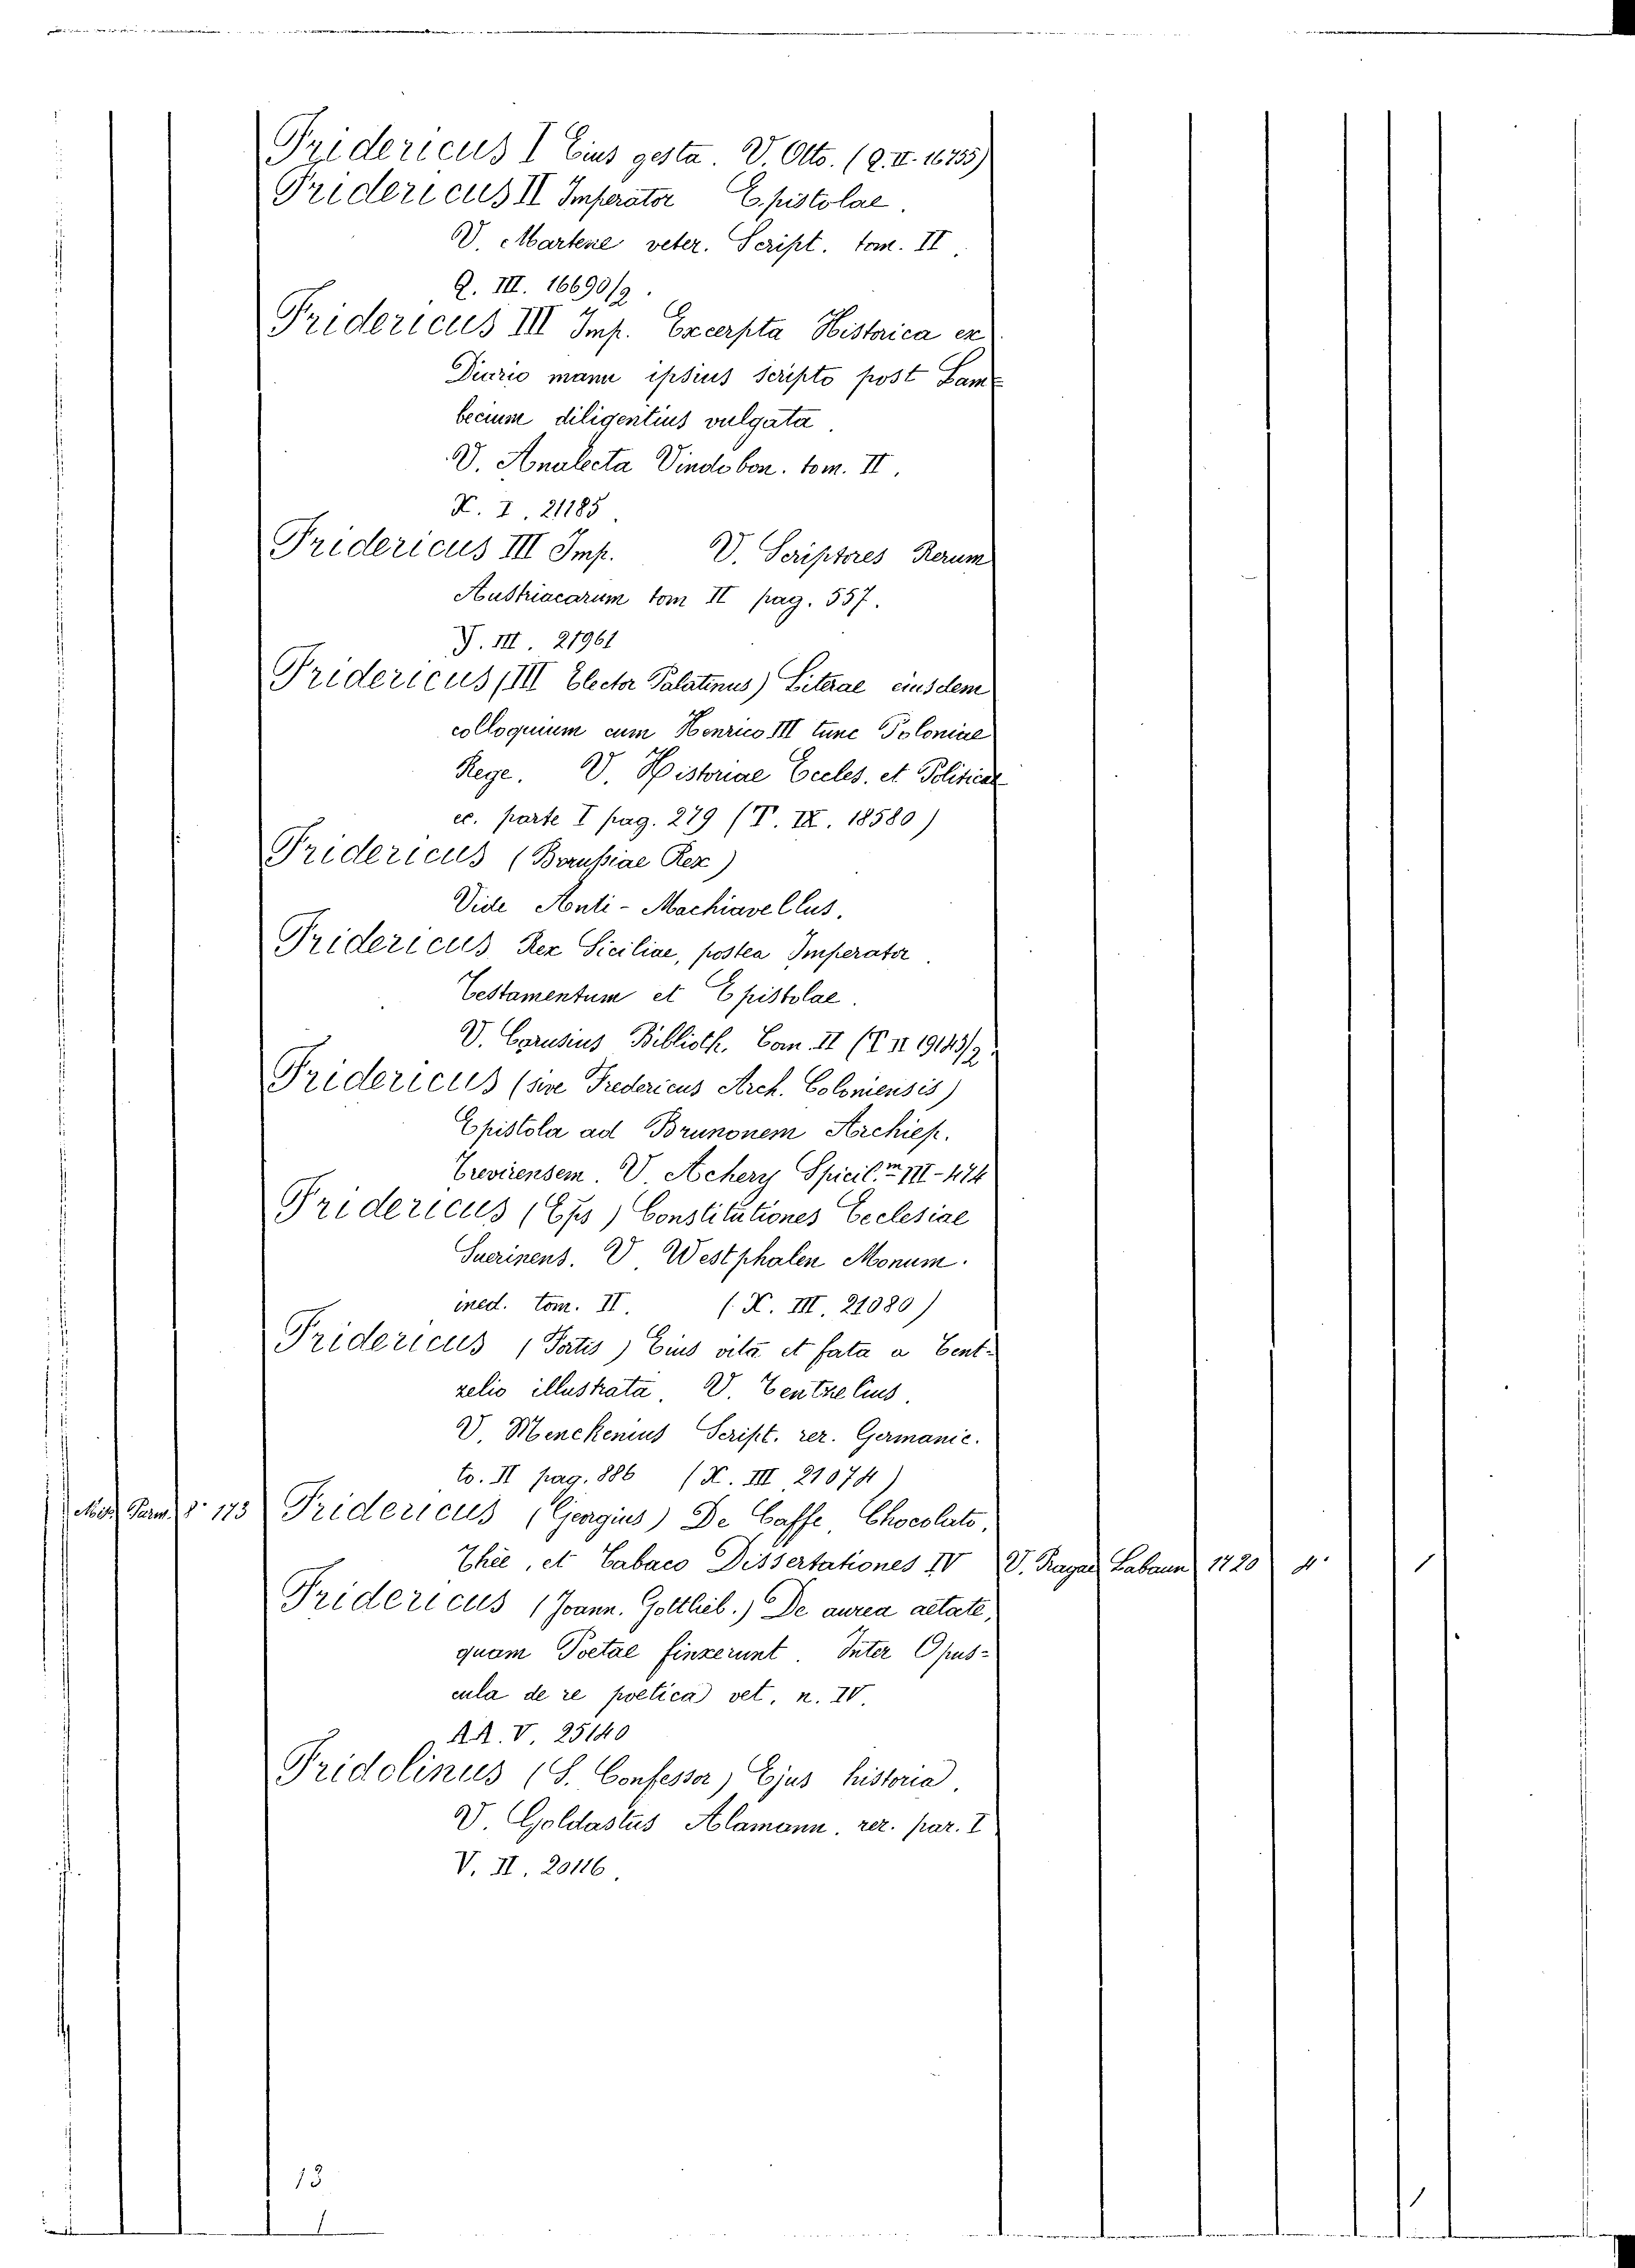 Fridericus I Eius gesta. V. Otto. (Q. II. 16755)
Fridericus II Imperator Epistolae.
V. Martene veter. Script. tom. II.
Q. III. 16690/2.
Fridericus III Imp. Excerpta Historica ex
Diario manu ipsius scripto post Lam=
becium diligentius vulgata.
V. Analecta Vindobon. tom. II.
X. I. 21185
Fridericus III Imp. V. Scriptores Rerum
Austriacarum tom II pag. 557.
Y. III. 21961
Fridericus (III Elector Palatinus) Literae eiusdem
colloquium cum Henrico III tunc Poloniae
Rege. V. Historiae Eccles. et Politicae
ec. parte I pag. 279 (T. IX. 18580)
Fridericus (Borussiae Rex)
Vide Anti-Machiavellus.
Fridericus Rex Siciliae, postea Imperator.
Testamentum et Epistolae.
V. Carusius Biblioth. Tom. II (T II 19143/2.
Fridericus (sive Fredericus Arch. Coloniensis)
Epistola ad Brunonem Archiep.
Trevirensem. V. Achery Spicil.m III-474
Fridericus (Eps) Constitutiones Ecclesiae
Suerinens. V. Westphalen Monum.
ined. tom. II. (X. III. 21080)
Fridericus (Fortis) Eius vita et fata a Tent-
zelio illustrata. V. Tentzelius.
V. Menckenius Script. rer. Germanic.
to. II pag. 886 (X. III 21074)
Misc. Parm. 8° 173 Fridericus (Georgius) De Caffe, Chocolato,
Thée, et Tabaco Dissertationes IV V. Labaun 1720 4° 1
Fridericus (Joann. Gottlieb.) De aurea aetate,
quam Poetae finxerunt. Inter Opus=
cula de re poetica vet. n. IV.
AA. V. 25140
Fridolinus (S. Confessor) Ejus historia.
V. Goldastus Alamann. rer. par. I
V. II. 20116.
13
1
1